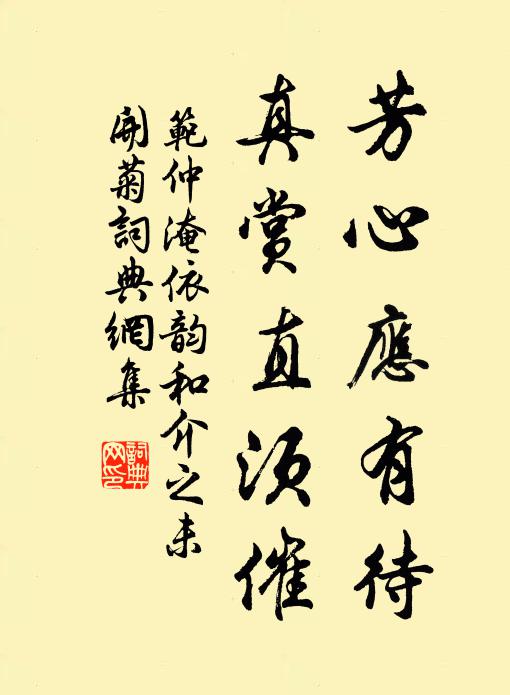 芳心應有待
真賞直須催
範仲淹依韵和介之未
開菊詞典網集
詞典
网印